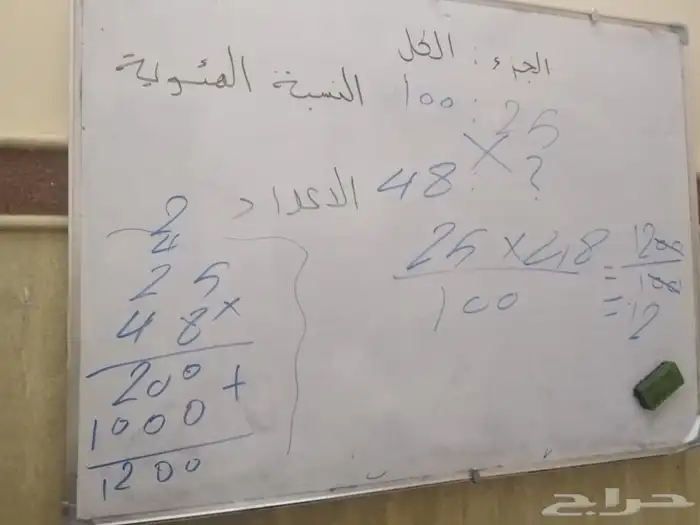 الجزء : الكل
النسبة المئوية 25 : 100
الأعداد ? : 48
25 × 48 / 100 = 1200 / 100
= 12
2
4
25
48 ×
200 +
1000
1200
حراج